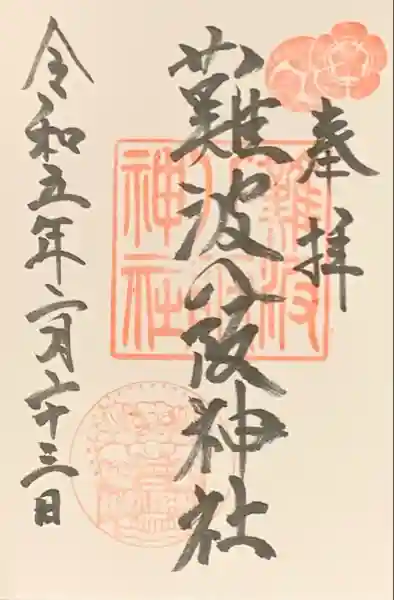 奉拝
難波八阪神社
令和五年二月二十三日
難波
八阪
神社